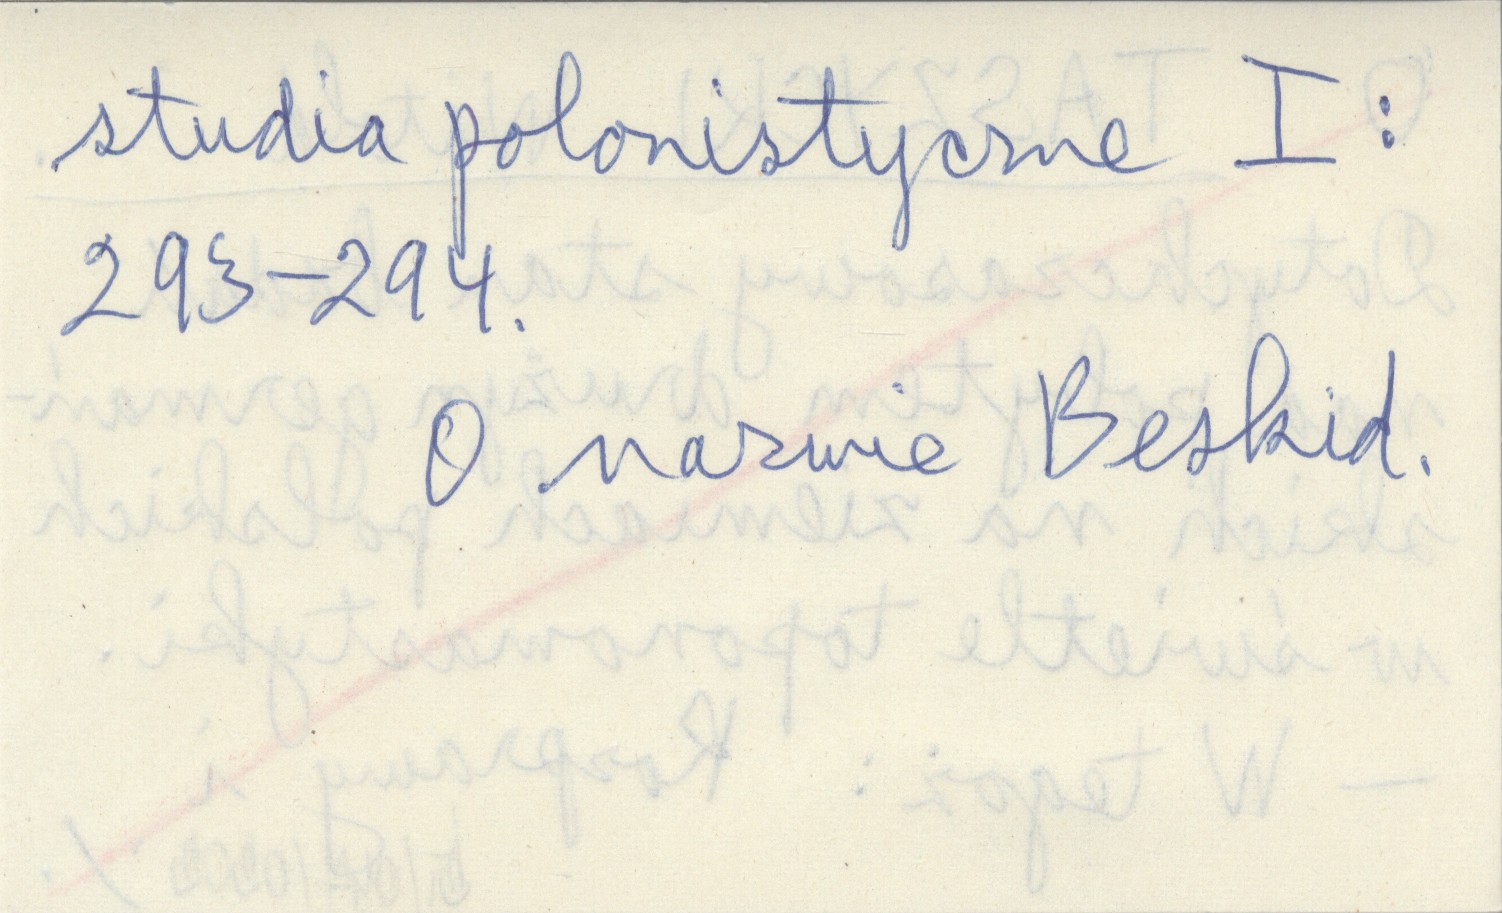 studia polonistyczne I:
293-294.
O nazwie Beskid.